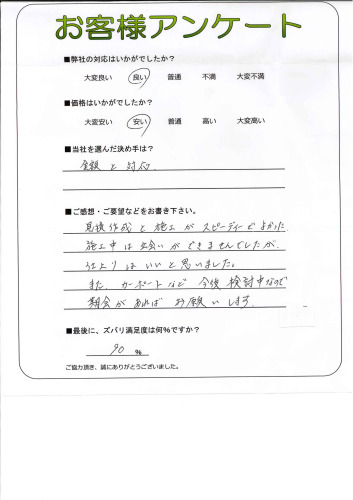 お客様アンケート
■弊社の対応はいかがでしたか?
大変良い 良い 普通 不満 大変不満
■価格はいかがでしたか?
大変安い 安い 普通 高い 大変高い
■当社を選んだ決め手は?
金額と対応
■ご感想・ご要望などをお書き下さい。
見積作成と施工がスピーディーでよかった
施工中は立会いができませんでしたが、
仕上りはいいと思いました。
また、カーポートなど今後検討中なので
機会があればお願いします。
■最後に、ズバリ満足度は何%ですか?
90 %
ご協力頂き、誠にありがとうございました。